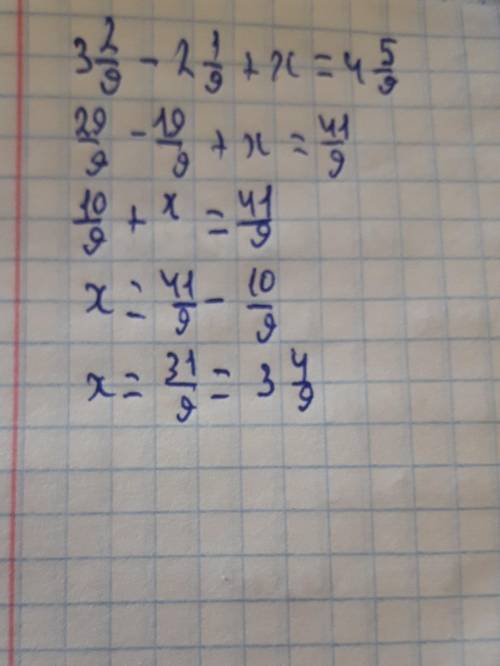 3 2/9 - 2 1/9 + x = 4 5/9
29/9 - 19/9 + x = 41/9
10/9 + x = 41/9
x = 41/9 - 10/9
x = 31/9 = 3 4/9